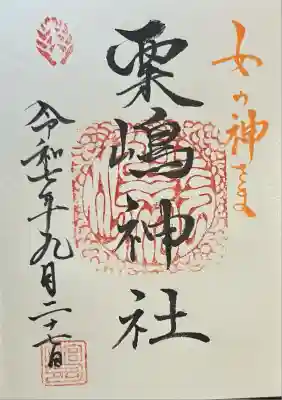 女の神さま
粟嶋神社
令和七年九月二十七日